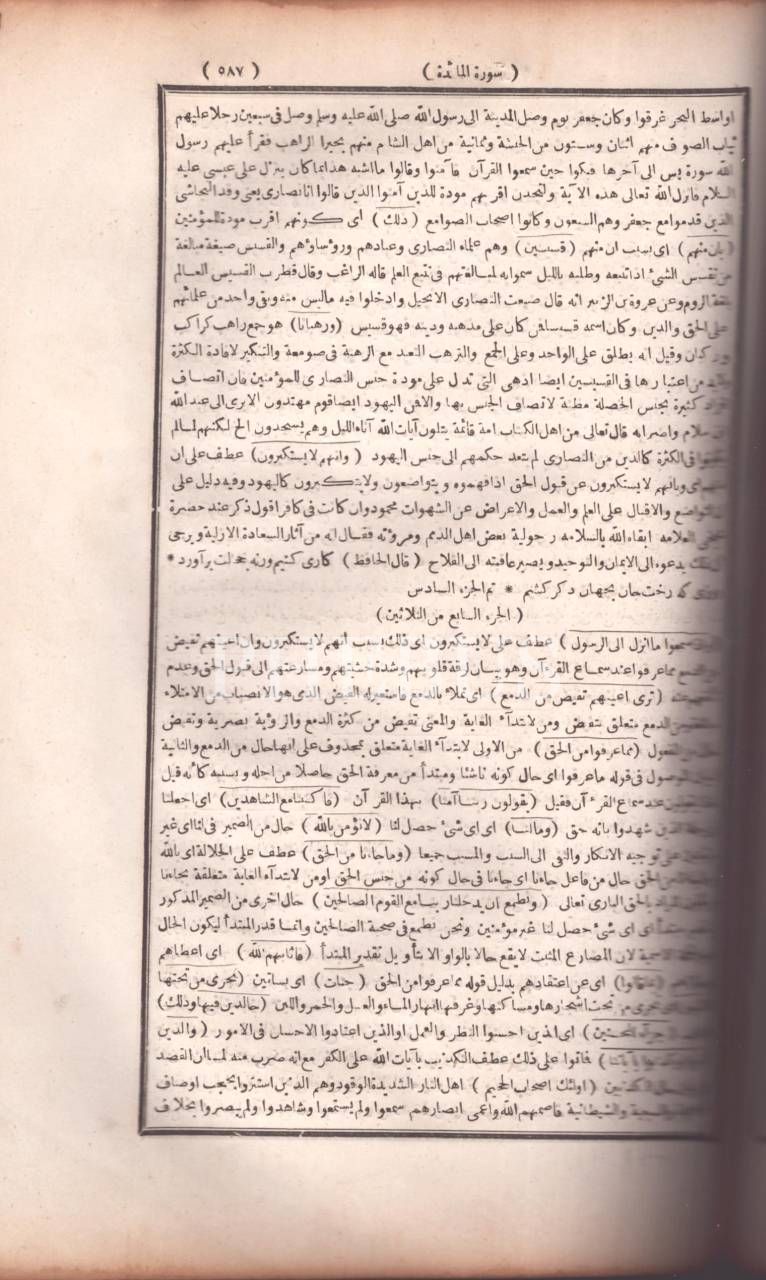 ( سورة المائدة ) ( ٥٨٧ )
اواسط البحر غرقوا وكان جعفر يوم وصل المدينة الى رسول الله صلى الله عليه وسلم وصل فى سبعين رجلا عليهم
ثياب الصوف منهم اثنان وستون من الحبشة وثمانية من اهل الشام منهم بحيرا الراهب فقرأ عليهم رسول
الله سورة يس الى آخرها فبكوا حين سمعوا القرآن فآمنوا وقالوا ما اشبه هذا بما كان ينزل على عيسى عليه
السلام فانزل الله تعالى هذه الآية ولتجدن اقربهم مودة للذين آمنوا الذين قالوا انا نصارى يعنى وفد النجاشى
الذين قدموا مع جعفر وهم السبعون وكانوا اصحاب الصوامع ( ذلك ) اى كونهم اقرب مودة للمؤمنين
( بان منهم ) اى بسبب ان منهم ( قسيسين ) وهم علماء النصارى وعبادهم ورؤساؤهم والقسيس صيغة مبالغة
من تقسس الشئ اذا تتبعه وطلبه بالليل سموا به لمبالغتهم فى تتبع العلم قاله الراغب وقال قطرب القسيس العالم
بلغة الروم وعن عروة بن الزبير انه قال ضيعت النصارى الانجيل وادخلوا فيه ما ليس منه وبقى واحد من علمائهم
على الحق والدين وكان اسمه قسيسا فمن كان على مذهبه ودينه فهو قسيس ( ورهبانا ) هو جمع راهب كراكب
وركبان وقيل انه يطلق على الواحد وعلى الجمع والترهب التعبد مع الرهبة فى صومعة والتنكير لافادة الكثرة
من اعتبارها فى القسيسين ايضا اذ هى التى تدل على مودة جنس النصارى للمؤمنين فان اتصاف
افراد كثيرة بجنس الخصلة مظنة لاتصاف الجنس بها والا فمن اليهود ايضا قوم مهتدون الا يرى الى عبد الله
بن سلام واضرابه قال تعالى من اهل الكتاب امة قائمة يتلون آيات الله آناء الليل وهم يسجدون الخ لكنهم لما لم
يكونوا فى الكثرة كالذين من النصارى لم يتعد حكمهم الى جنس اليهود ( وانهم لا يستكبرون ) عطف على ان
منهم اى وبانهم لا يستكبرون عن قبول الحق اذا فهموه ويتواضعون ولا يتكبرون كاليهود وفيه دليل على
ان التواضع والاقبال على العلم والعمل والاعراض عن الشهوات محمود وان كانت فى كافر اقول ذكر عند حضرة
شيخى العلامه ابقاه الله بالسلامه رجولية بعض اهل الذمم ومروءته فقال انه من آثار السعادة الازلية ويرجى
ان ذلك يدعوه الى الايمان والتوحيد ويصير عاقبته الى الفلاح ( قال الحافظ ) كارى كنيم ورنه خجالت برآورد *
روزى كه رخت جان بجهان دكر كشيم * تم الجزء السادس
( الجزء السابع من الثلاثين )
سمعوا ما انزل الى الرسول ) عطف على لا يستكبرون اى ذلك بسبب انهم لا يستكبرون وان اعينهم تفيض
مما عرفوا عند سماع القرءآن وهو بيان لرقة قلوبهم وشدة خشيتهم ومسارعتهم الى قبول الحق وعدم
( ترى اعينهم تفيض من الدمع ) اى تملأ بالدمع فاستعير له الفيض الذى هو الانصباب من الامتلاء
الدمع متعلق بتفيض ومن لابتدآء الغاية والمعنى تفيض من كثرة الدمع والرؤية بصرية وتفيض
( مما عرفوا من الحق ) من الاولى لابتدآء الغاية متعلق بمحذوف على انها حال من الدمع والثانية
الموصول فى قوله ما عرفوا اى حال كونه ناشئا ومبتدأ من معرفة الحق حاصلا من اجله وبسببه كأنه قيل
عند سماع القرءآن فقيل ( يقولون ربنا آمنا ) بهذا القرآن ( فاكتبنا مع الشاهدين ) اى اجعلنا
شهدوا بانه حق ( وما لنا ) اى اى شئ حصل لنا ( لا نؤمن بالله ) حال من الضمير فى لنا اى غير
توجيه الانكار والنفى الى السبب والمسبب جميعا ( وما جاءنا من الحق ) عطف على الجلالة اى بالله
من الحق حال من فاعل جاءنا اى جاءنا فى حال كونه من جنس الحق او من لابتدآء الغاية متعلقة بجاءنا
بالحق البارى تعالى ( ونطمع ان يدخلنا ربنا مع القوم الصالحين ) حال اخرى من الضمير المذكور
اى اى شئ حصل لنا غير مؤمنين ونحن نطمع فى صحبة الصالحين وانما قدر المبتدأ ليكون الحال
الاسمية لان المضارع المثبت لا يقع حالا بالواو الا بتأويل تقدير المبتدأ ( فاثابهم الله ) اى اعطاهم
( بما قالوا ) اى عن اعتقادهم بدليل قوله مما عرفوا من الحق ( جنات ) اى بساتين ( تجرى من تحتها
اى تجرى من تحت اشجارها ومساكنها وغرفها انهار الماء والعسل والخمر واللبن ( خالدين فيها وذلك )
( جزاء المحسنين ) اى الذين احسنوا النظر والعمل او الذين اعتادوا الاحسان فى الامور ( والذين
كفروا وكذبوا بآياتنا ) فماتوا على ذلك عطف التكذيب بآيات الله على الكفر مع انه ضرب منه لما ان القصد
( اولئك اصحاب الجحيم ) اهل النار الشديدة الوقود وهم الذين استتروا بحجب اوصاف
والسبعية والشيطانية فاصمهم الله واعمى ابصارهم سمعوا ولم يستمعوا وشاهدوا ولم يبصروا بخلاف